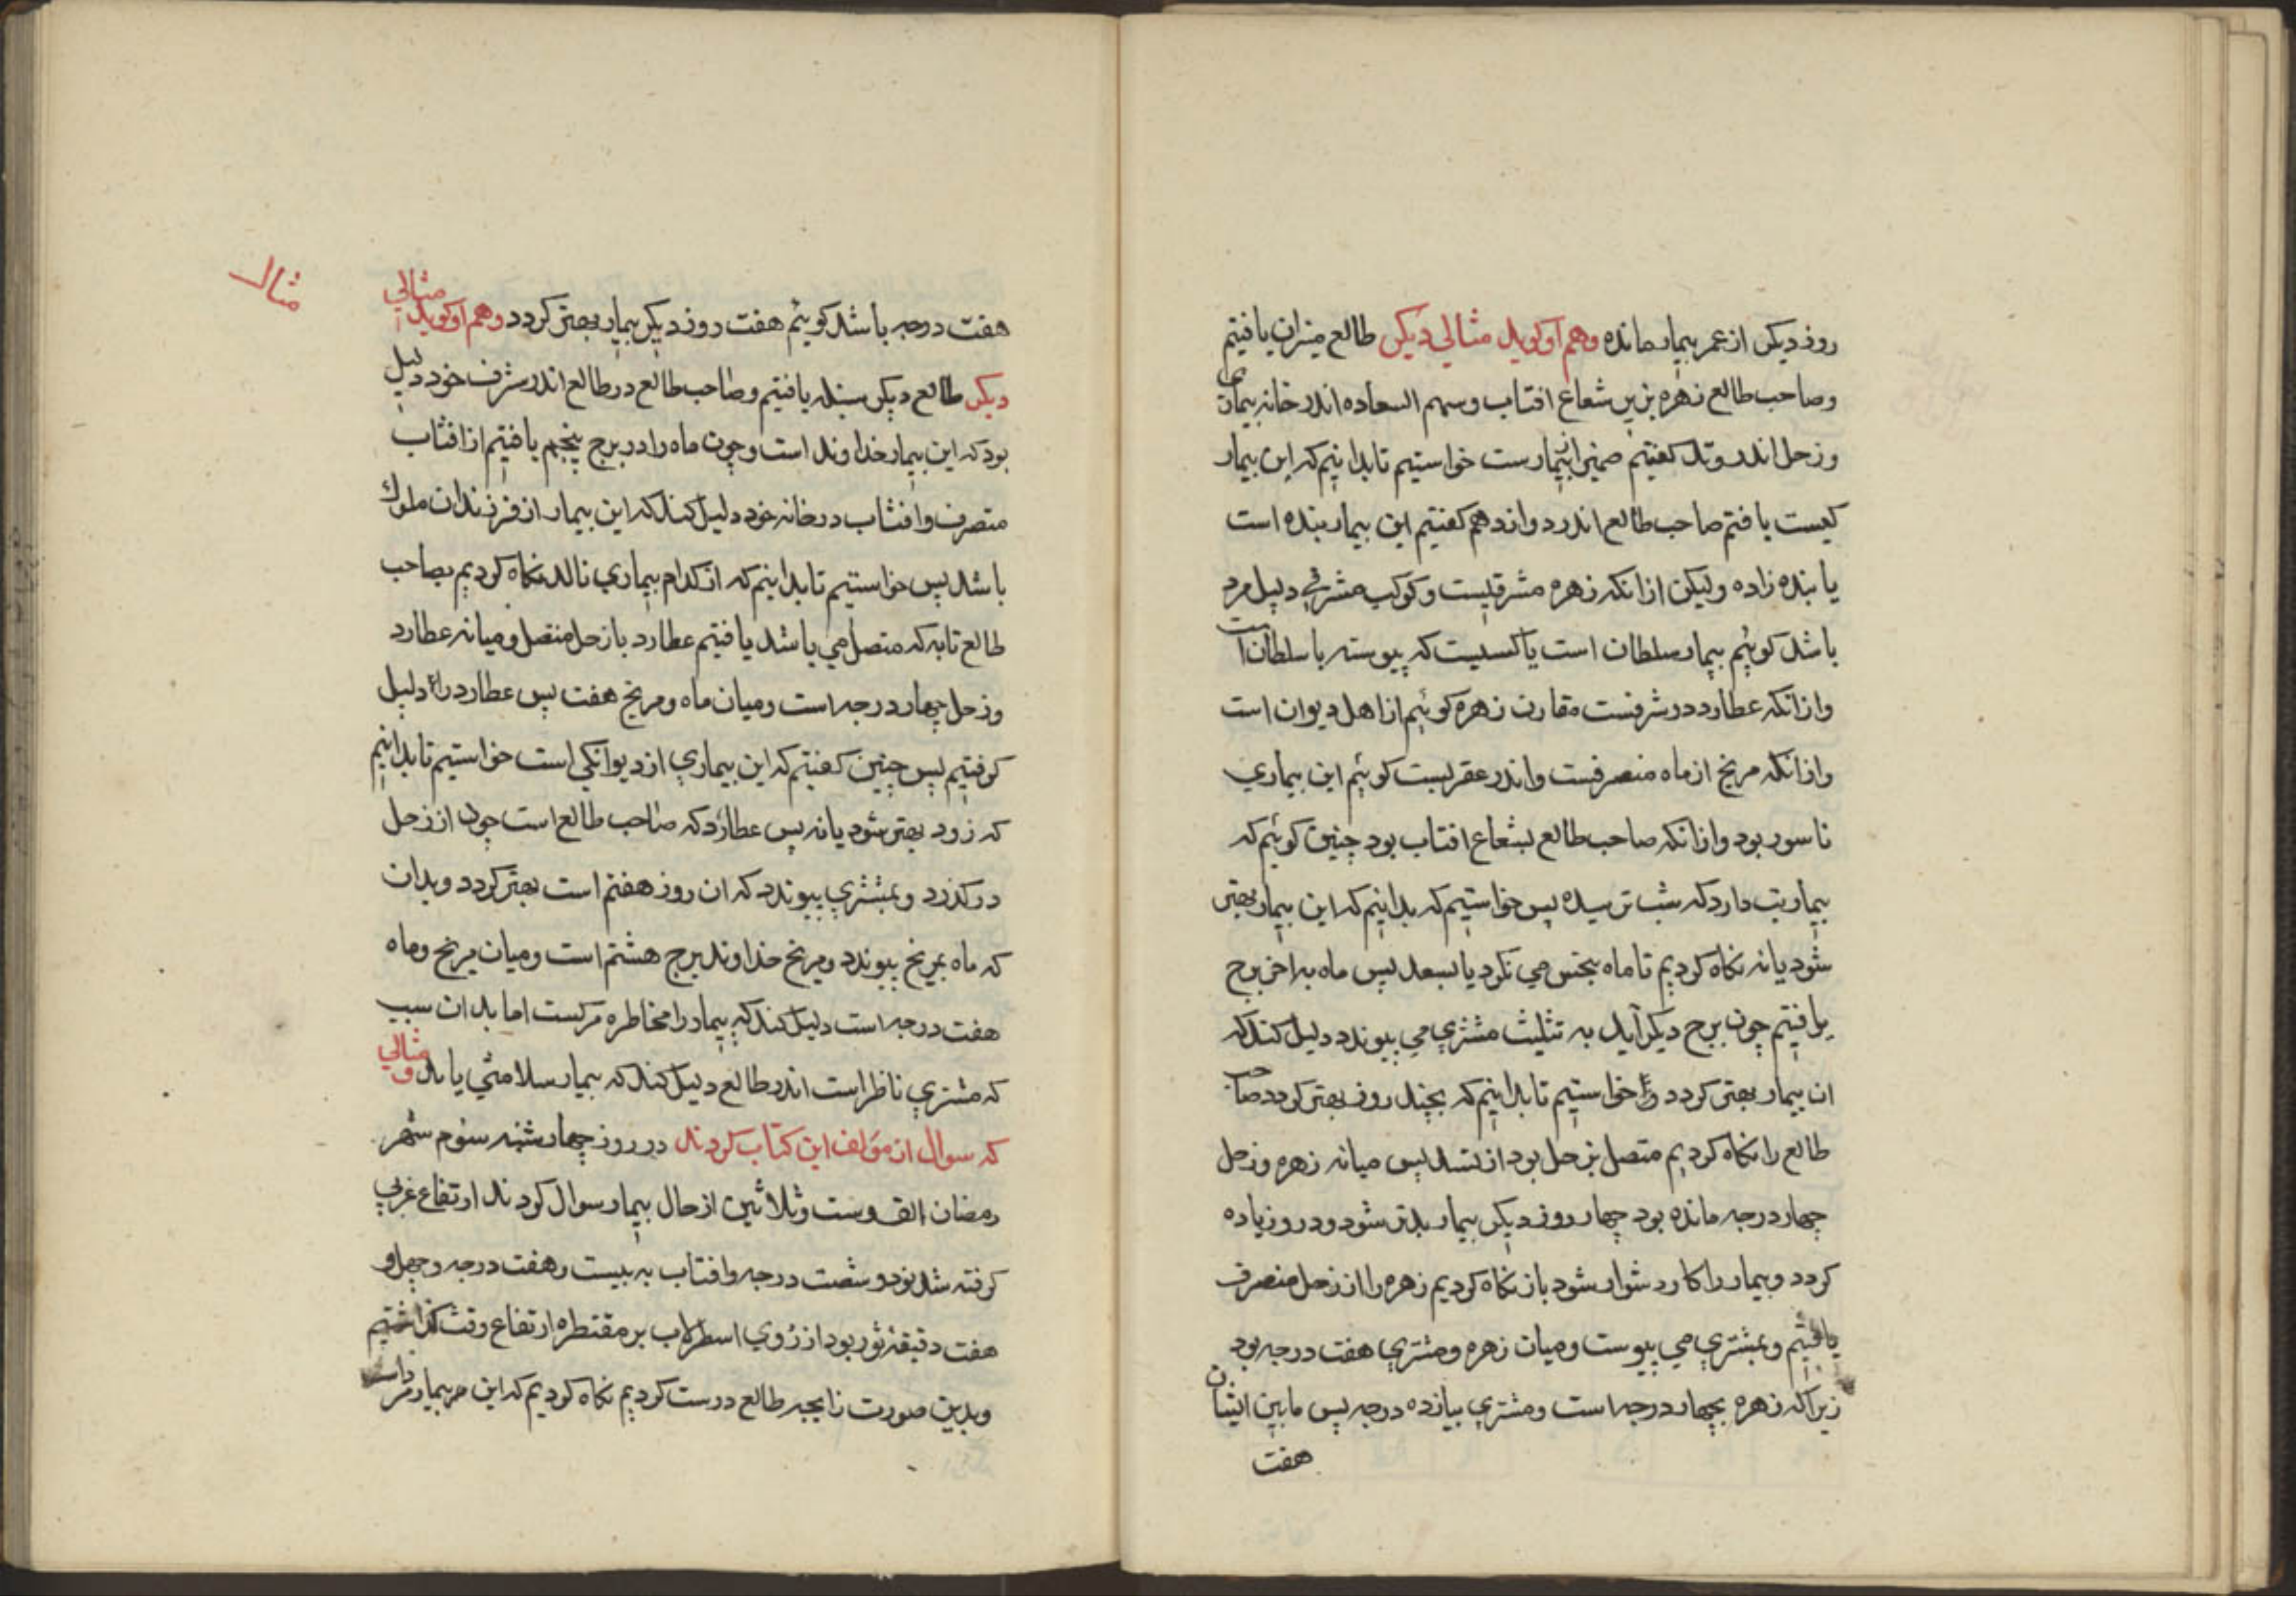 روز دیکر از عمر بیمار مانده وهم او کوید مثالی دیکر طالع میزان یافتیم
وصاحب طالع زهره بزیر شعاع افتاب وسهم السعاده اندر خانه بیماری
وزحل اندر وتد کفتیم ضمیر از بیمارست خواستیم تا بدانیم که این بیمار
کیست یافتم صاحب طالع اندر دوازدهم کفتیم این بیمار بنده است
یا بنده زاده ولیکن ازانکه زهره مشرقیست وکوکب مشرقی دلیل مرد
باشد کوییم بیمار سلطان است یا کسیست که پیوسته با سلطان است
وازانکه عطارد در شرفست مقارن زهره کوییم از اهل دیوان است
وازانکه مریخ از ماه منصرفست واندر عقربست کوئیم این بیماری
ناسور بود وازانکه صاحب طالع بشعاع افتاب بود چنین کوئیم که
بیماریت دارد که شب ترسیده پس خواستیم که بدانیم که این بیمار بهتر
شود یا نه نکاه کردیم تا ماه بنحس می نکرد یا بسعد پس ماه به اخر برج
یافتیم چون برج دیکر آید به تثلیث مشتری می پیوندد دلیل کند که
ان بیمار بهتر کردد واخواستیم تا بدانیم که بچند روز بهتر کردد صاحب
طالع را نکاه کردیم متصل بزحل بود از تسدیس میانه زهره وزحل
چهار درجه مانده بود چهار روز دیکر بیمار بدتر شود ودر وزیاده
کردد وبیمار را کار دشوار شود باز نکاه کردیم زهره را از زحل منصرف
یافتیم وبمشتری می پیوست ومیان زهره ومشتری هفت درجه بود
زیرا که زهره بچهار درجه است ومشتری بیازده درجه پس مابین ایشان
هفت
مثال
هفت درجه باشد کوئیم هفت روز دیکر بیمار بهتر کردد وهم او کوید مثالی
دیکر طالع دیکر سنبله یافتیم وصاحب طالع در طالع اندر شرف خود دلیل
بود که این بیمار خداوند است وچون ماه را در برج پنجم یافتیم از افتاب
متصرف وافتاب در خانه خود دلیل کند که این بیمار از فرزندان ملوک
باشد پس خواستیم تا بدانیم که از کدام بیماری نالد نکاه کردیم بصاحب
طالع تا به که متصل می باشد یافتیم عطارد با زحل متصل ومیانه عطارد
وزحل چهار درجه است ومیان ماه ومریخ هفت پس عطارد را دلیل
کرفتیم پس چنین کفتیم که این بیماری از دیوانکی است خواستیم تا بدانیم
که زود بهتر شود یا نه پس عطارد که صاحب طالع است چون از زحل
درکذرد وبمشتری پیوندد که ان روز هفتم است بهتر کردد وبدان
که ماه بمریخ پیوندد ومریخ خداوند برج هشتم است ومیان مریخ وماه
هفت درجه است دلیل کند که بیمار را مخاطره مرکست اما بدان سبب
که مشتری ناظر است اندر طالع دلیل کند که بیمار سلامتی یابد ومثالی
که سوال از مولف این کتاب کردند در روز چهارشنبه سوم شهر
رمضان الف وست وثلاثین از حال بیمار سوال کردند ارتفاع غربی
کرفته شد بود وشصت درجه وافتاب به بیست وهفت درجه وچهل و
هفت دقیقه ثور بود از روی اسطرلاب بر مقنطره ارتفاع وقت کذاشتیم
وبدین صورت زایجه طالع درست کردیم نکاه کردیم که این مر بیمار مر